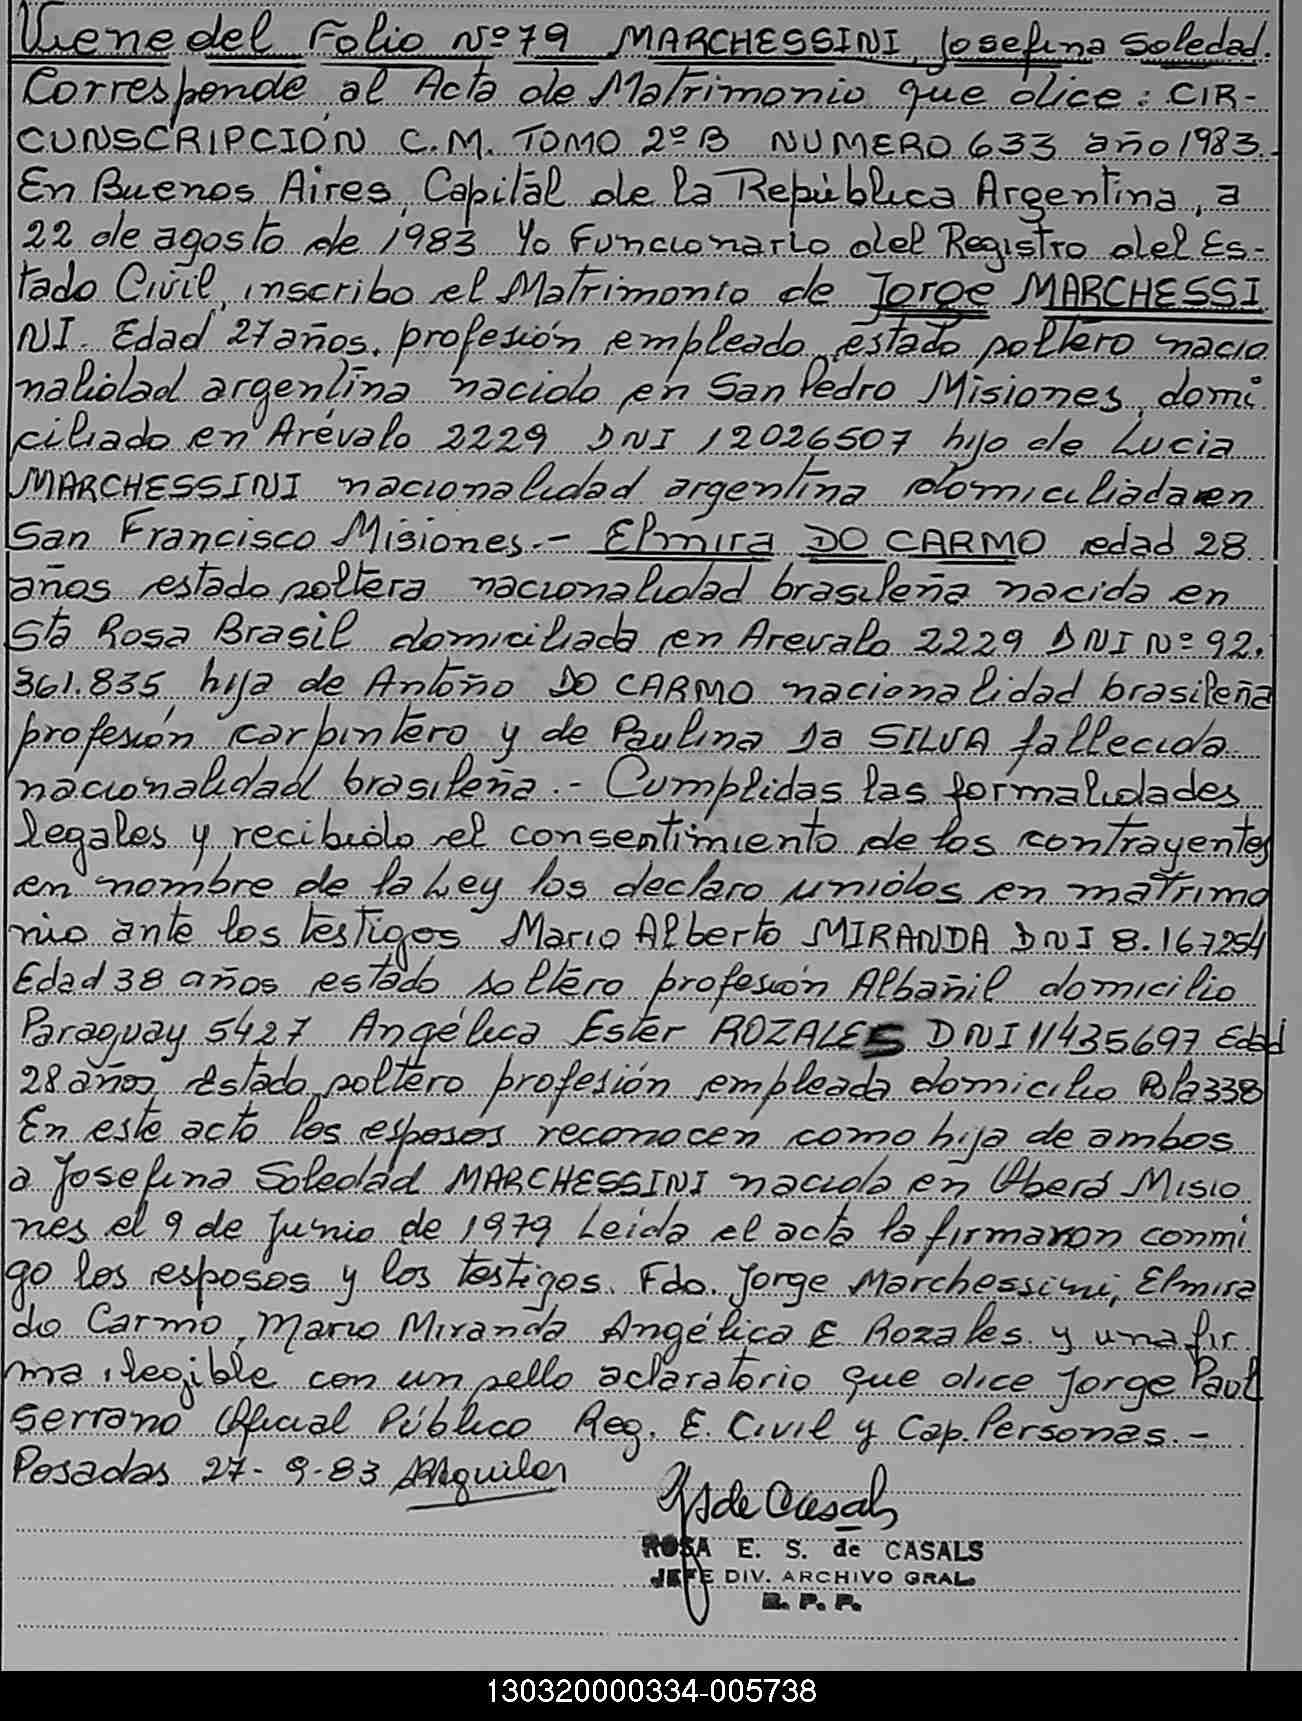 Viene del Folio Nº 79 MARCHESSINI, Josefina Soledad.
Corresponde al Acta de Matrimonio que dice: CIR-
CUNSCRIPCIÓN C.M. TOMO 2º B NUMERO 633 año 1983.-
En Buenos Aires, Capital de la República Argentina, a
22 de agosto de 1983 Yo Funcionario del Registro del Es-
tado Civil, inscribo el Matrimonio de Jorge MARCHESSI
NI. Edad 27 años, profesión empleado, estado soltero nacio
nalidad argentina nacido en San Pedro Misiones, domi
ciliado en Arévalo 2229 DNI 12026507 hijo de Lucia
MARCHESSINI nacionalidad argentina domiciliada en
San Francisco Misiones.- Elmira DO CARMO edad 28
años estado soltera nacionalidad brasileña nacida en
Sta Rosa Brasil domiciliada en Arevalo 2229 DNI Nº 92.
361.835, hija de Antoño DO CARMO nacionalidad brasileña
profesión carpintero y de Paulina Da SILVA fallecida
nacionalidad brasileña.- Cumplidas las formalidades
legales y recibido el consentimiento de los contrayentes
en nombre de la Ley los declaro unidos en matrimo
nio ante los testigos Mario Alberto MIRANDA DNI 8.167254
Edad 38 años estado soltero profesión Albañil domicilio
Paraguay 5427 Angélica Ester ROZALES DNI 11435697 Edad
28 años estado soltero profesión empleada domicilio Pola 338
En este acto los esposos reconocen como hija de ambos
a Josefina Soledad MARCHESSINI nacida en Oberá Misio
nes el 9 de Junio de 1979 Leida el acta la firmaron conmi
go los esposos y los testigos. Fdo. Jorge Marchessini, Elmira
do Carmo, Mario Miranda Angélica E Rozales y una fir
ma ilegible con un sello aclaratorio que dice Jorge Paul
Serrano Oficial Público Reg. E. Civil y Cap. Personas.-
Posadas 27-9-83 Aguilar
de Casals
ROSA E. S. de CASALS
JEFE DIV. ARCHIVO GRAL.
R. P. P.
130320000334-005738